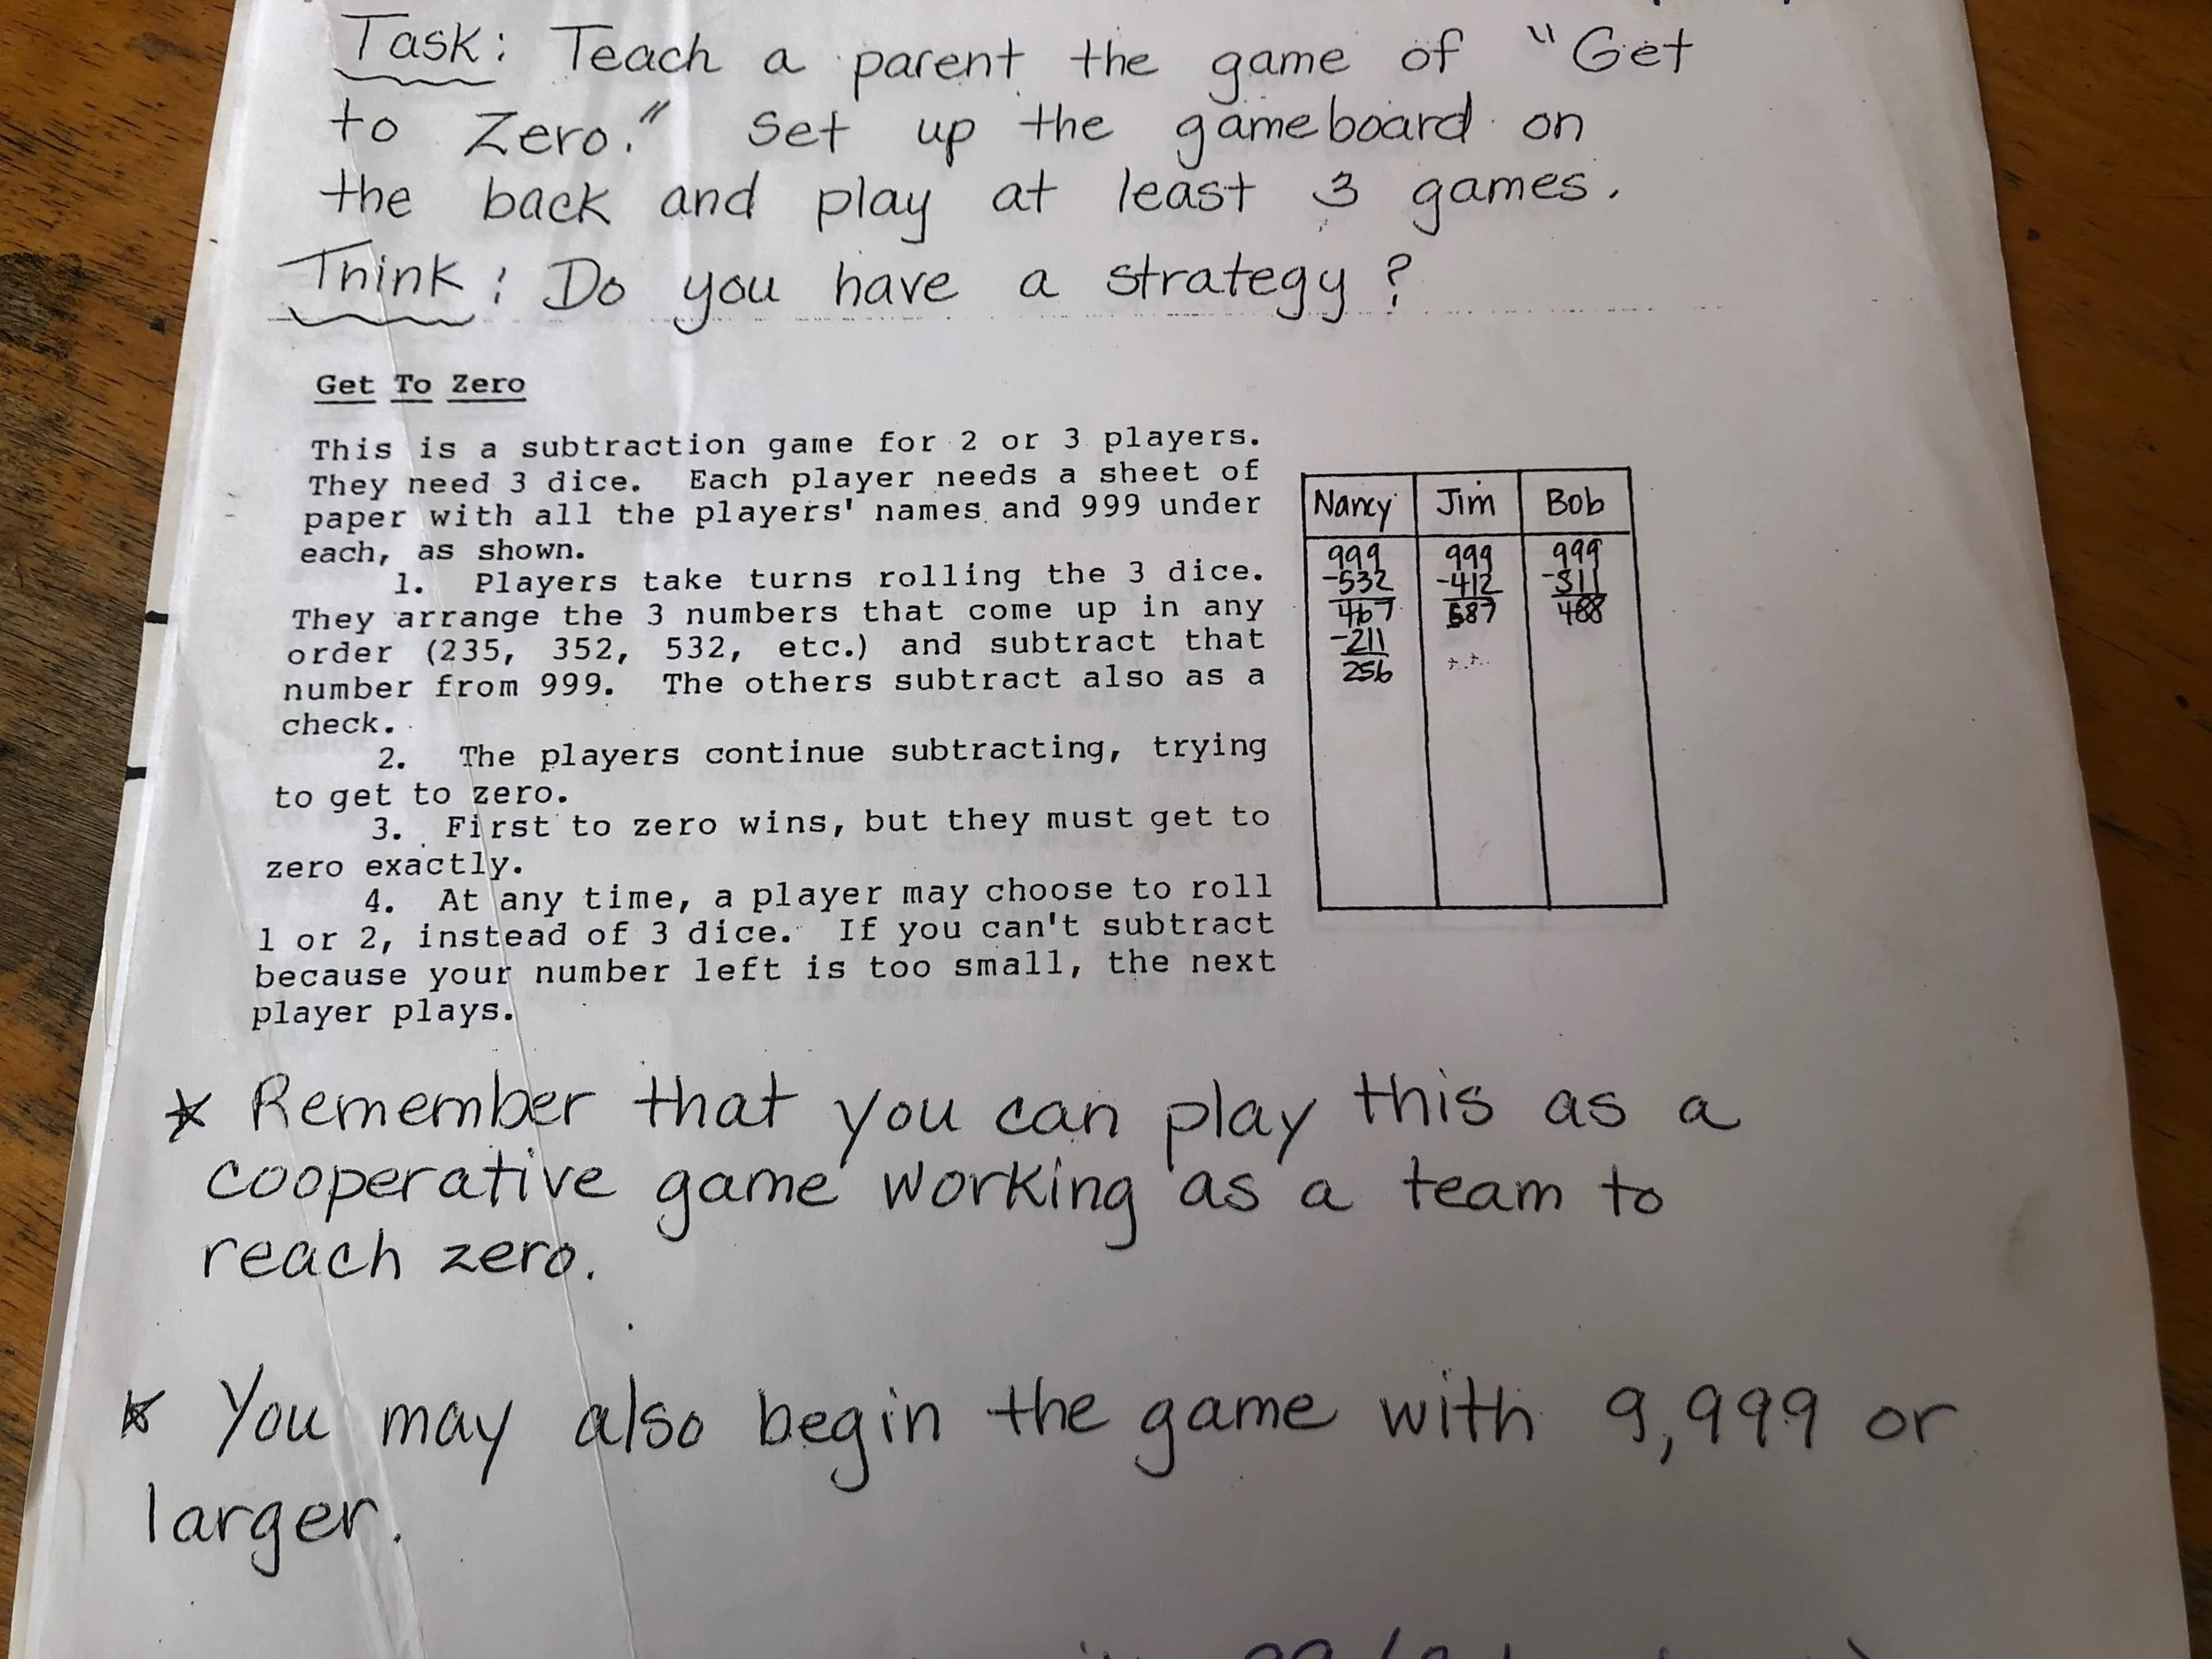 Task: Teach a parent the game of "Get
to Zero." Set up the gameboard on
the back and play at least 3 games.
Think: Do you have a strategy?
Get To Zero
This is a subtraction game for 2 or 3 players.
They need 3 dice. Each player needs a sheet of
paper with all the players' names and 999 under
each, as shown.
1. Players take turns rolling the 3 dice.
They arrange the 3 numbers that come up in any
order (235, 352, 532, etc.) and subtract that
number from 999. The others subtract also as a
check.
2. The players continue subtracting, trying
to get to zero.
3. First to zero wins, but they must get to
zero exactly.
4. At any time, a player may choose to roll
1 or 2, instead of 3 dice. If you can't subtract
because your number left is too small, the next
player plays.
Nancy Jim Bob
999 999 999
-532 -412 -511
467 587 488
-211
256
* Remember that you can play this as a
cooperative game working as a team to
reach zero.
* You may also begin the game with 9,999 or
larger.